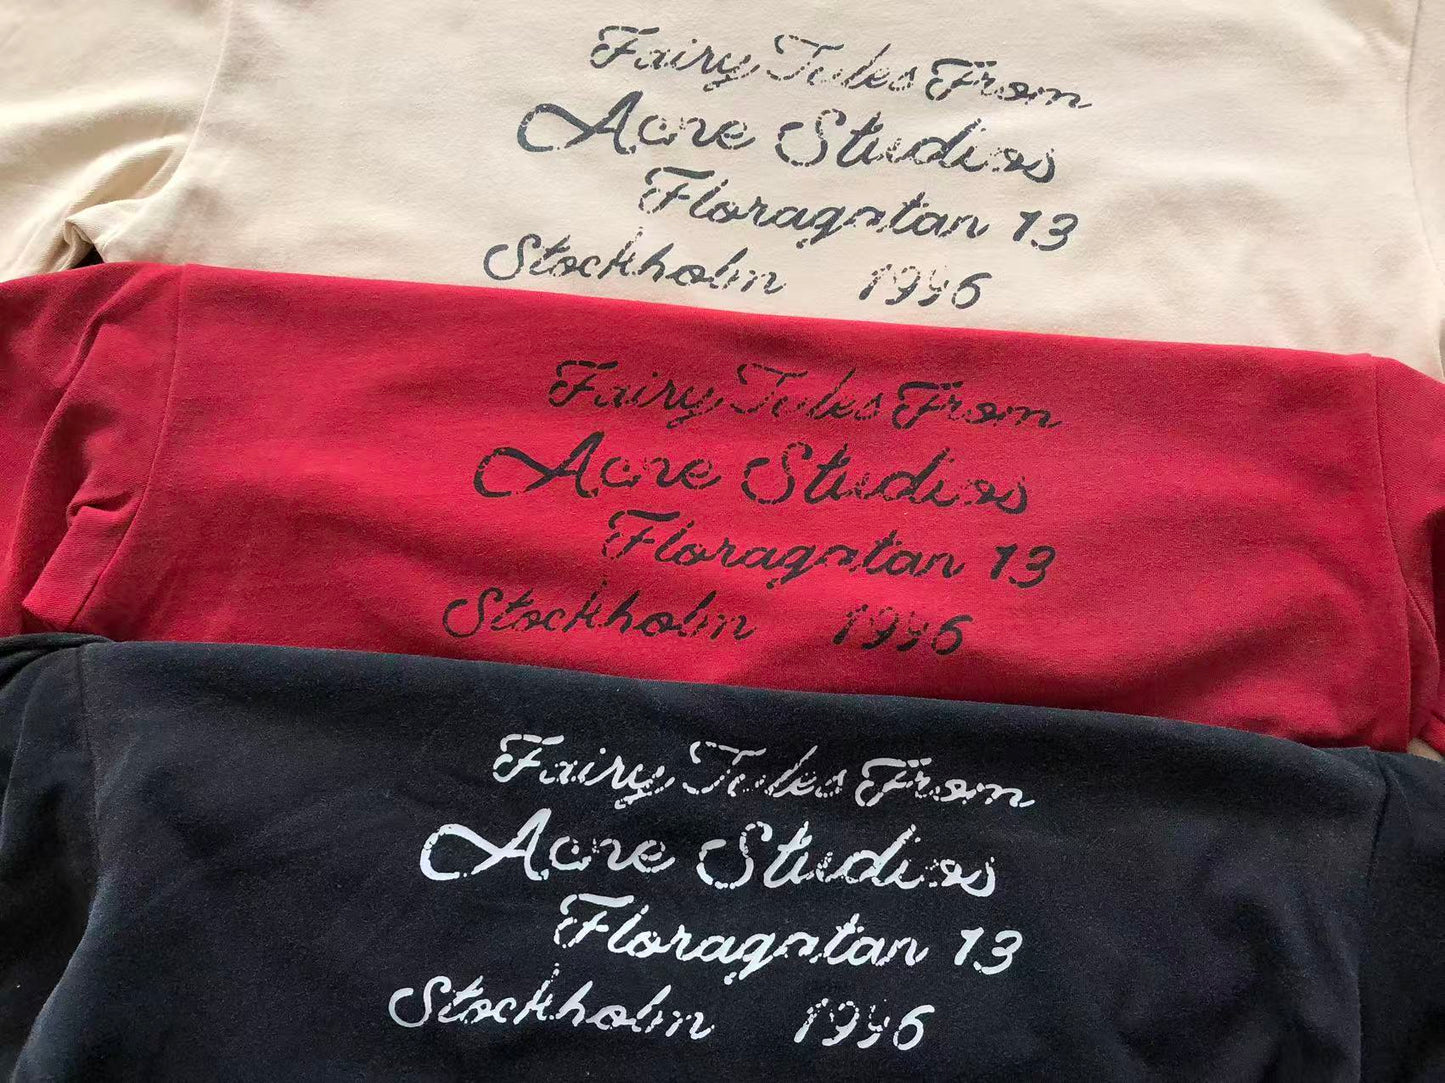 Fairy Tales From
Acne Studios
Floragatan 13
Stockholm 1996
Fairy Tales From
Acne Studios
Floragatan 13
Stockholm 1996
Fairy Tales From
Acne Studios
Floragatan 13
Stockholm 1996